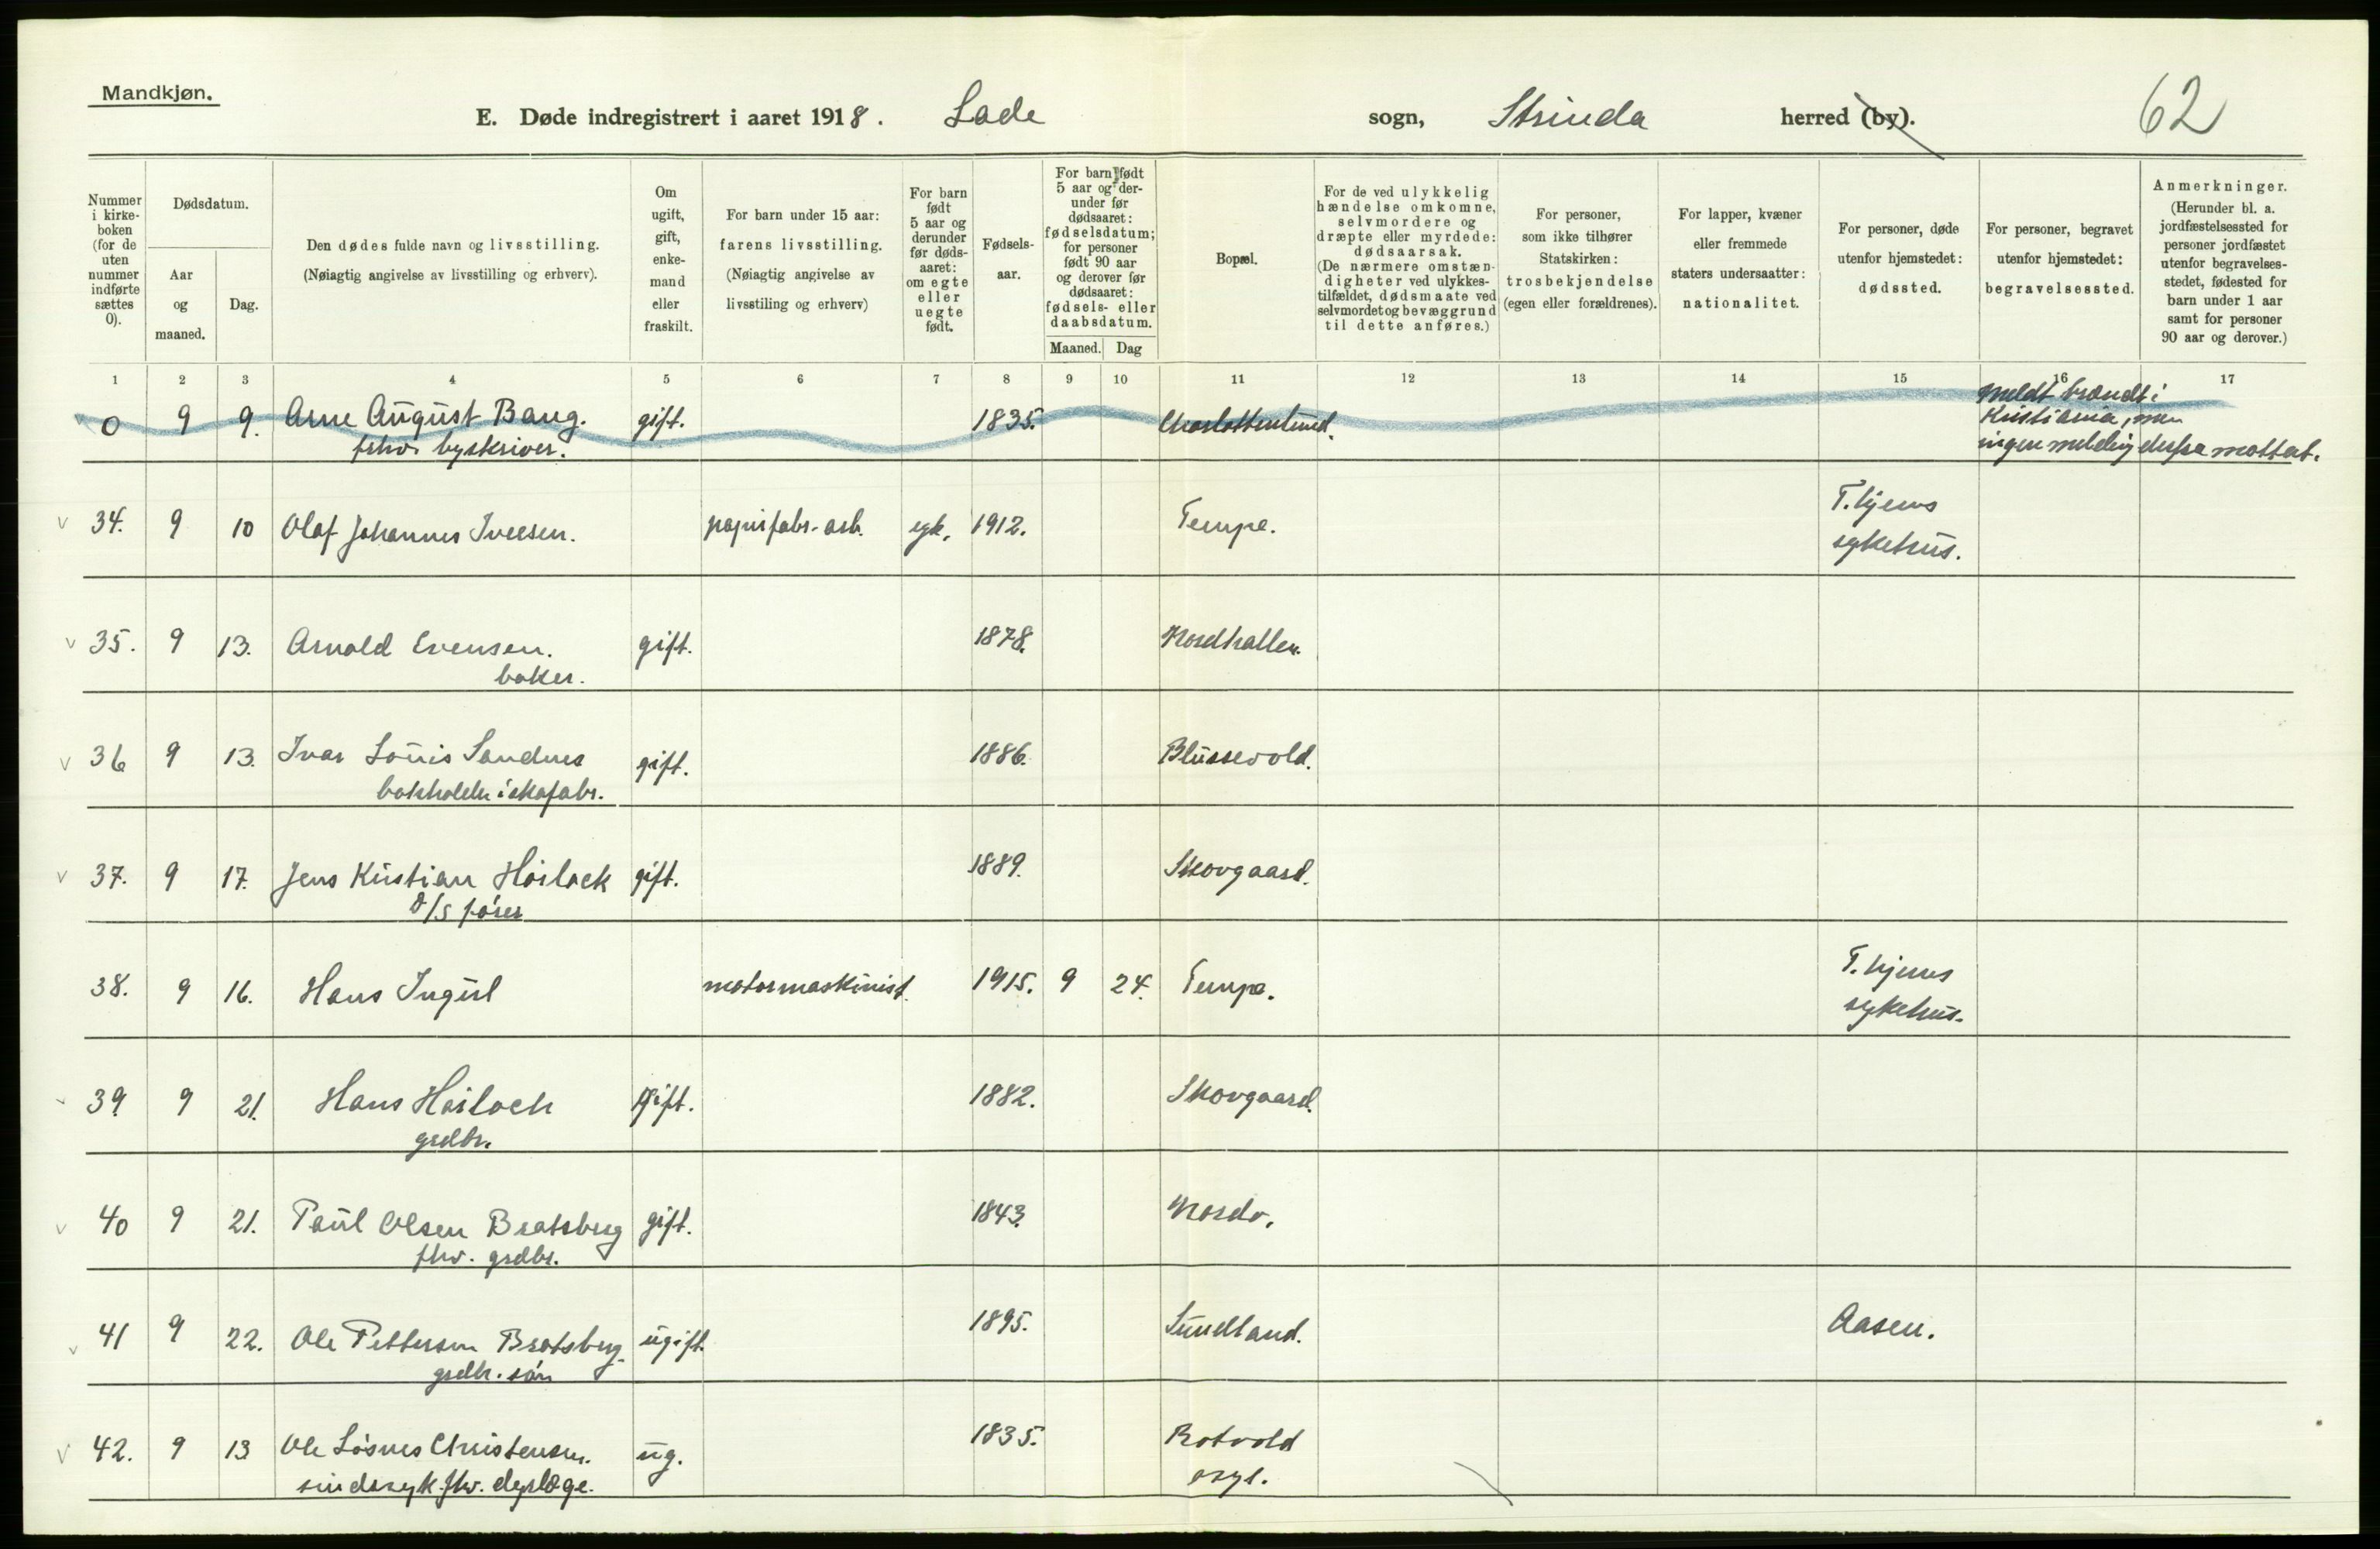 Mandkjøn.
E. Døde indregistrert i aaret 1918. Lade sogn, Strinda herred (by). 62
Nummer i kirke-boken (for de uten nummer indførte sættes 0).
Dødsdatum.
Aar og maaned.
Dag.
Den dødes fulde navn og livsstilling.
(Nøiagtig angivelse av livsstilling og erhverv).
Om ugift, gift, enke-mand eller fraskilt.
For barn under 15 aar:
farens livsstilling.
(Nøiagtig angivelse av livsstiling og erhverv)
For barn født 5 aar og derunder før døds-aaret: om egte eller uegte født.
Fødsels-aar.
For barn født 5 aar og der-under før dødsaaret: fødselsdatum; for personer født 90 aar og derover før dødsaaret: fødsels- eller daabsdatum.
Maaned. Dag
Bopæl.
For de ved ulykkelig hændelse omkomne, selvmordere og dræpte eller myrdede: dødsaarsak.
(De nærmere omstæn-digheter ved ulykkes-tilfældet, dødsmaate ved selvmordet og bevæggrund til dette anføres.)
For personer, som ikke tilhører Statskirken: trosbekjendelse (egen eller forældrenes).
For lapper, kvæner eller fremmede staters undersaatter: nationalitet.
For personer, døde utenfor hjemstedet: dødssted.
For personer, begravet utenfor hjemstedet: begravelsessted.
Anmerkninger.
(Herunder bl. a. jordfæstelsessted for personer jordfæstet utenfor begravelses-stedet, fødested for barn under 1 aar samt for personer 90 aar og derover.)
1 2 3 4 5 6 7 8 9 10 11 12 13 14 15 16 17
0 9 9. Arne August Bang. gift. 1835. Charlottenlund. Meldt brændt i
fhv. byskriver. Kristiania, men
ingen melding derfra mottat.
v 34. 9 10 Olaf Johannes Iversen. papirfabr. arb. egte. 1912. Tempe. T.hjems
sykehus.
v 35. 9 13. Arnold Evensen. gift. 1878. Nordhallen.
baker.
v 36 9 13. Ivar Louis Sandnes gift. 1886. Blussevold.
bokholder i skofabr.
v 37. 9 17. Jens Kristian Hoiloch gift. 1889. Skovgaard.
D/S fører
38. 9 16. Hans Ingul motormaskinist. 1915. 9 24. Tempe. T.hjems
sykehus.
39. 9 21. Hans Hoiloch gift. 1882. Skovgaard.
grdbr.
v 40 9 21. Paul Olsen Bratsberg gift. 1843. Mosdr.
fhv. grdbr.
v 41 9 22. Ole Pettersen Bratsberg. ugift. 1895. Sundland. Aasen.
grdbr. søn
v 42. 9 13 Ole Løsnes Christensen. ug. 1835. Rotvold
sindssyk fhv. dyrlæge. asyl.